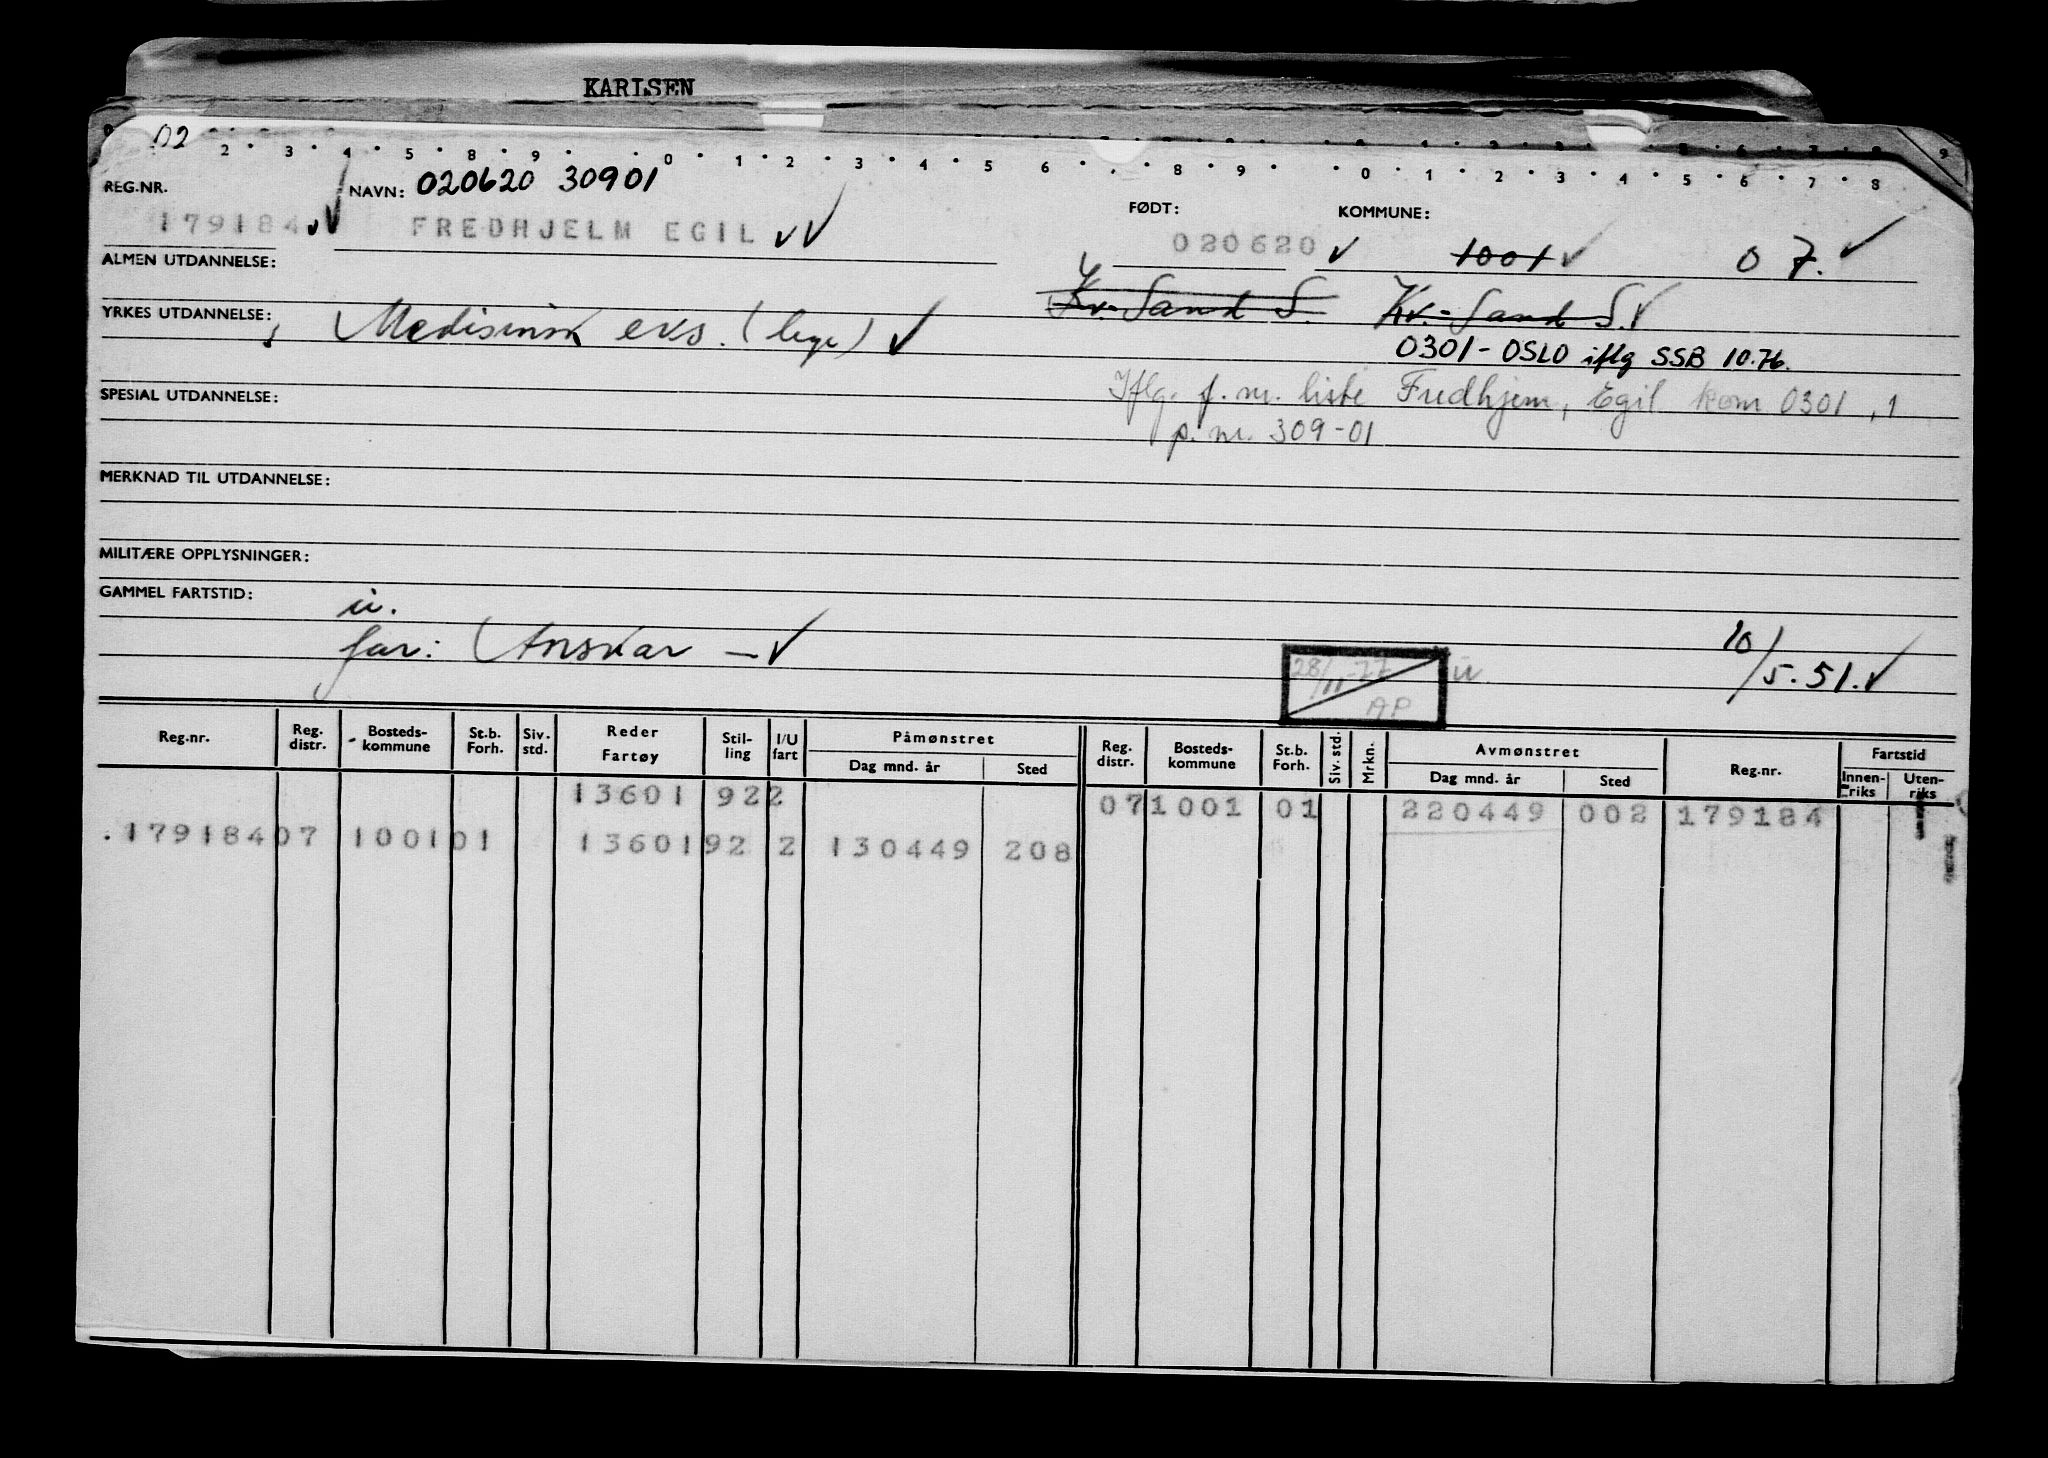 KARLSEN
02 2 3 4 5 8 9 0 1 2 3 4 5 6 8 9 0 1 2 3 4 5 6 7 8 9
REG.NR. NAVN: 020620 30901 FØDT: KOMMUNE:
179184 FREDHJELM EGIL 020620 1001 07.
ALMEN UTDANNELSE: Kr. Sand S. Kr. Sand S.
YRKES UTDANNELSE: Medisinsk eks. (lege)
0301 - OSLO iflg SSB 10.76.
SPESIAL UTDANNELSE: Iflg. f. nr. liste Fredhjem, Egil kom 0301, 1
p. nr. 309-01
MERKNAD TIL UTDANNELSE:
MILITÆRE OPPLYSNINGER:
GAMMEL FARTSTID: u.
far: Anskar — 10/5.51.
28/11-77 AP u
Reg.nr. Reg. distr. Bosteds-kommune St.b. Forh. Siv. std. Reder Fartøy Stil-ling I/U fart Påmønstret Dag mnd. år Sted Reg. distr. Bosteds-kommune St.b. Forh. Siv. std. Mrkn. Avmønstret Dag mnd. år Sted Reg.nr. Fartstid Innen-riks Uten-riks
13601 922 07 1001 01 220449 002 179184
179184 07 1001 01 13601 92 2 130449 208